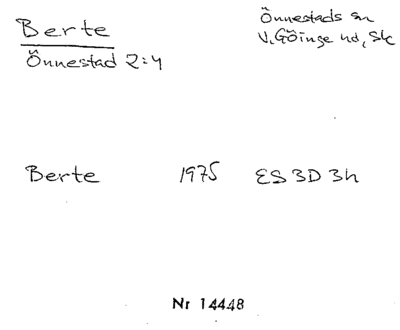 Berte
Önnestad 2:4
Önnestads sn
V. Göinge hd, Sk
Berte 1975 ES 3D 3h
Nr 14448